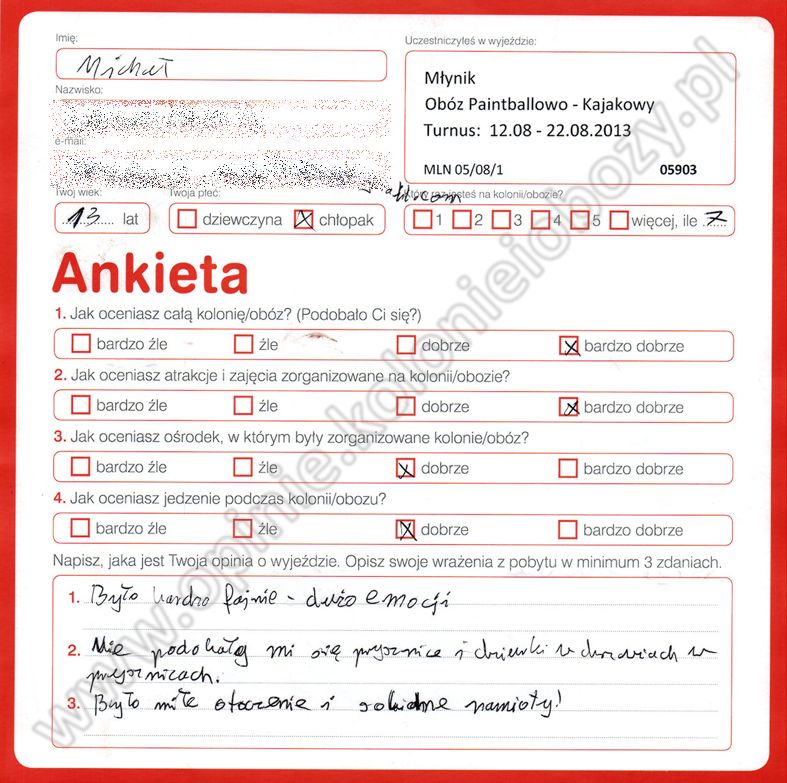 Imię:
Michał
Uczestniczyłeś w wyjeździe:
Młynik
Obóz Paintballowo - Kajakowy
Turnus: 12.08 - 22.08.2013
MLN 05/08/1 05903
Nazwisko:
e-mail:
Twój wiek:
13 lat
Twoja płeć:
dziewczyna chłopak
Który raz jesteś na kolonii/obozie?
1 2 3 4 5 więcej, ile 7
Ankieta
1. Jak oceniasz całą kolonię/obóz? (Podobało Ci się?)
bardzo źle źle dobrze bardzo dobrze
2. Jak oceniasz atrakcje i zajęcia zorganizowane na kolonii/obozie?
bardzo źle źle dobrze bardzo dobrze
3. Jak oceniasz ośrodek, w którym były zorganizowane kolonie/obóz?
bardzo źle źle dobrze bardzo dobrze
4. Jak oceniasz jedzenie podczas kolonii/obozu?
bardzo źle źle dobrze bardzo dobrze
Napisz, jaka jest Twoja opinia o wyjeździe. Opisz swoje wrażenia z pobytu w minimum 3 zdaniach.
1. Było bardzo fajnie - dużo emocji
2. Nie podobały mi się prysznice i dziurki w drzwiach w
prysznicach.
3. Było miłe otoczenie i solidne namioty!
www.opinie.kolonieiobozy.pl